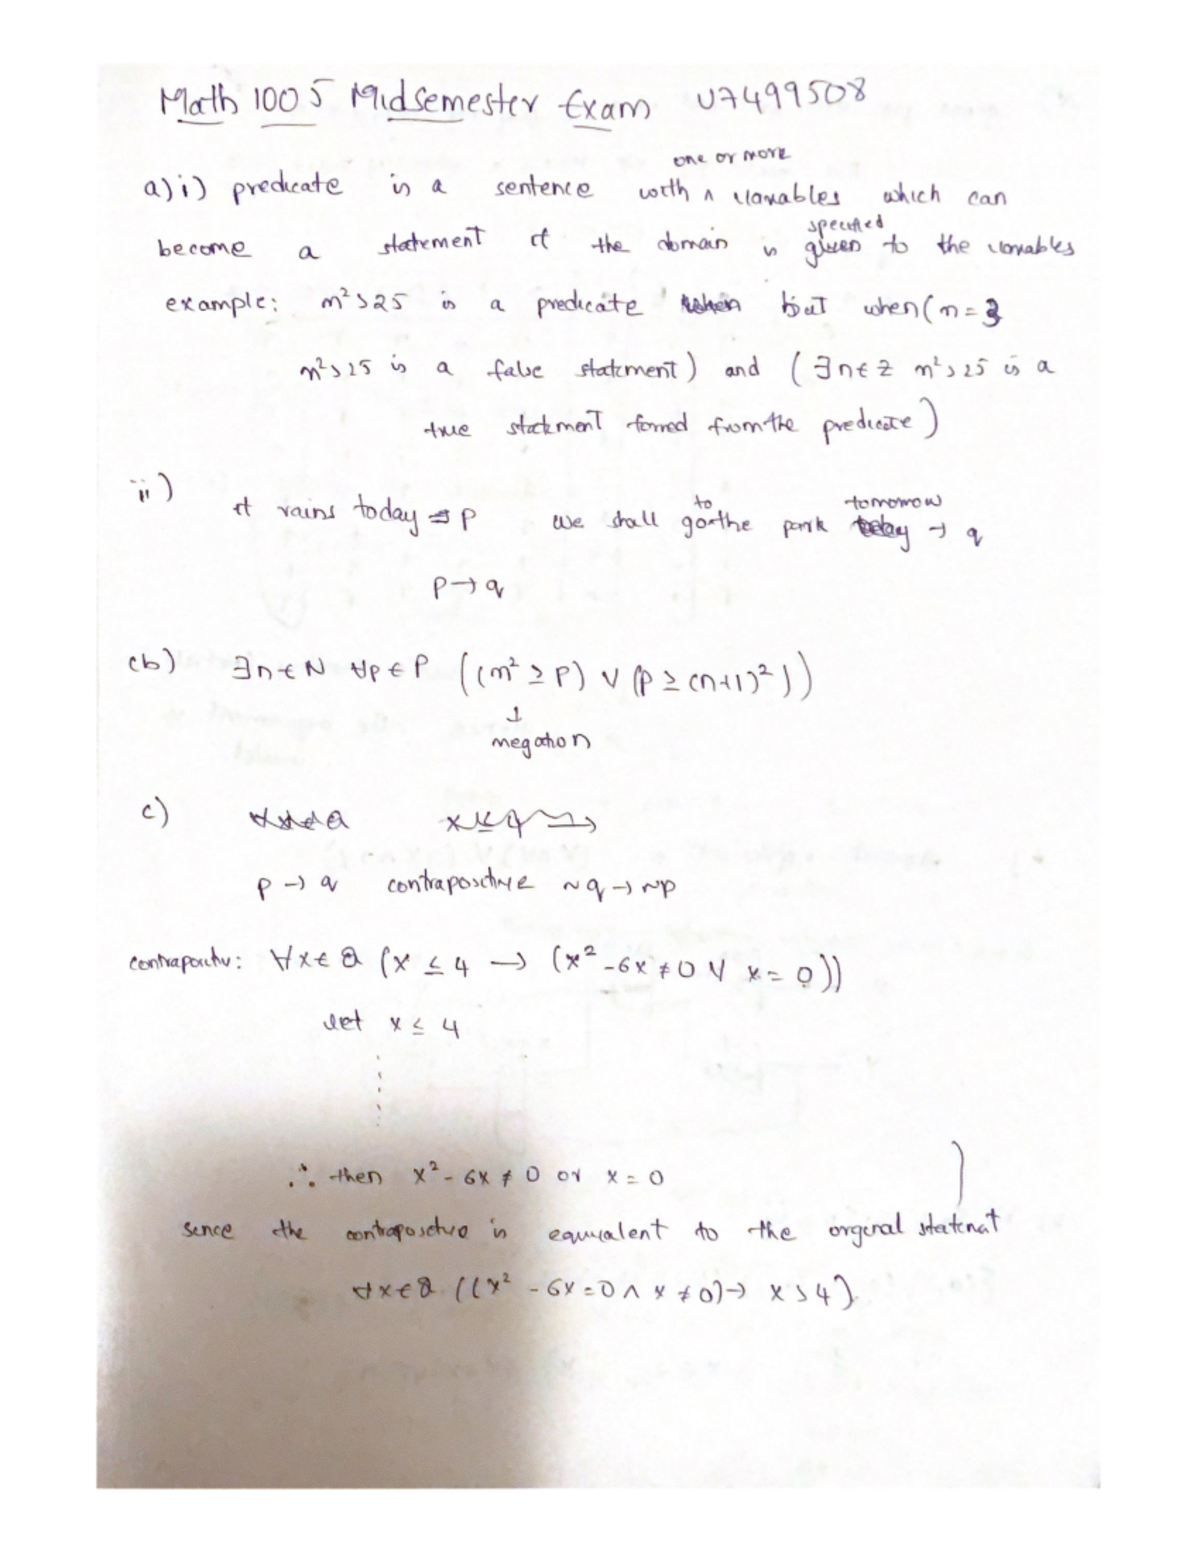 Math 1005 Midsemester Exam U7499508
one or more
a) i) predicate is a sentence with ∧ variables which can
specified
become a statement if the domain is given to the variables
example: n² > 25 is a predicate when but when (n = 3
n² > 25 is a false statement) and (∃n ∈ Z n² > 25 is a
true statement formed from the predicate)
ii)
to tomorrow
it rains today → p we shall go the park today → q
p → q
(b) ∃n ∈ N ∀p ∈ P ((n² ≥ p) ∨ (p ≥ (n+1)²))
↓
negation
c) ∀x ∈ Q x ≤ 4 →
p → q contrapositive ~q → ~p
contrapositiv: ∀x ∈ Q (x ≤ 4 → (x² - 6x ≠ 0 ∨ x = 0))
let x ≤ 4
∴ then x² - 6x ≠ 0 or x = 0
sence the contrapositive is equivalent to the orginal statemat
∀x ∈ Q ((x² - 6x = 0 ∧ x ≠ 0) → x > 4)